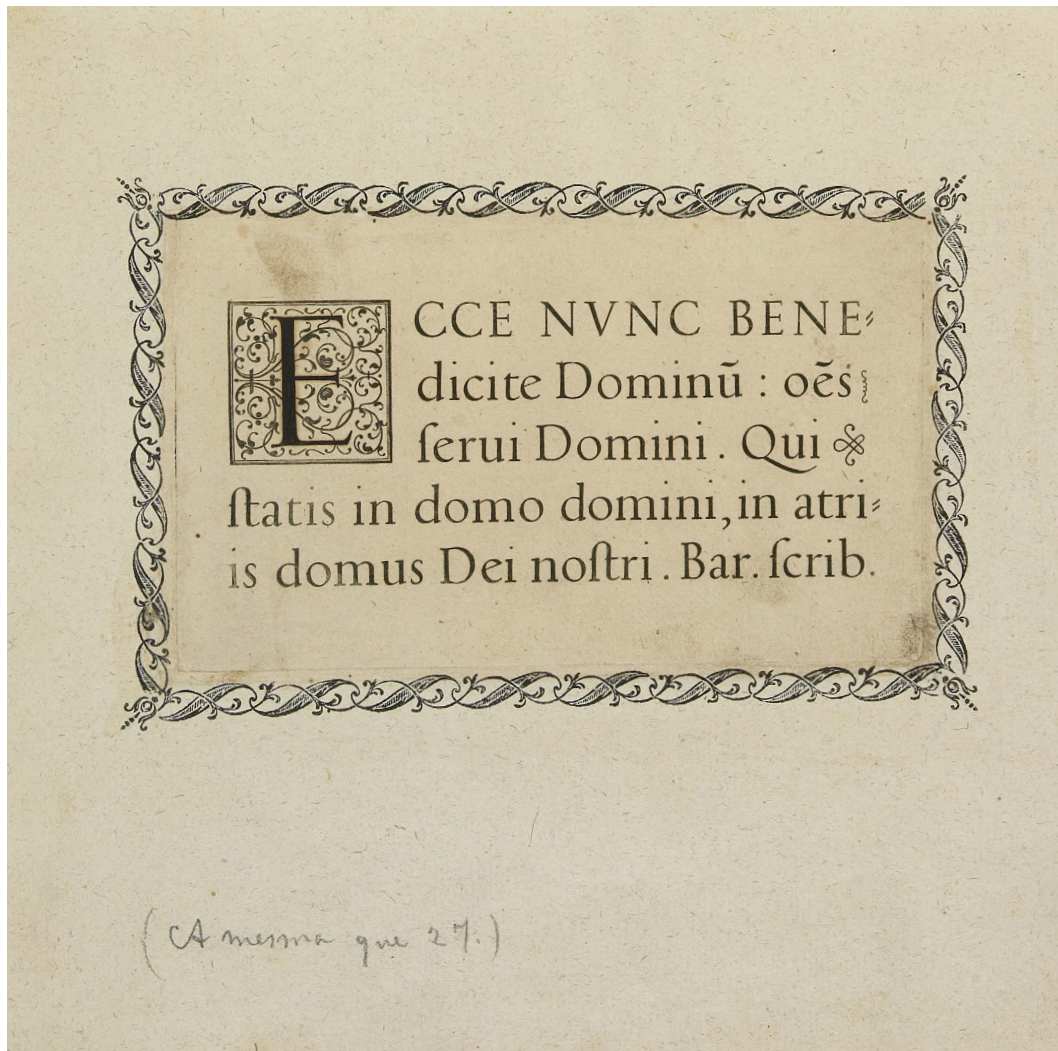 ECCE NVNC BENE⸗
dicite Dominū : oēs
ſerui Domini . Qui
ſtatis in domo domini, in atri⸗
is domus Dei noſtri . Bar. ſcrib.
(A mesma que 27.)